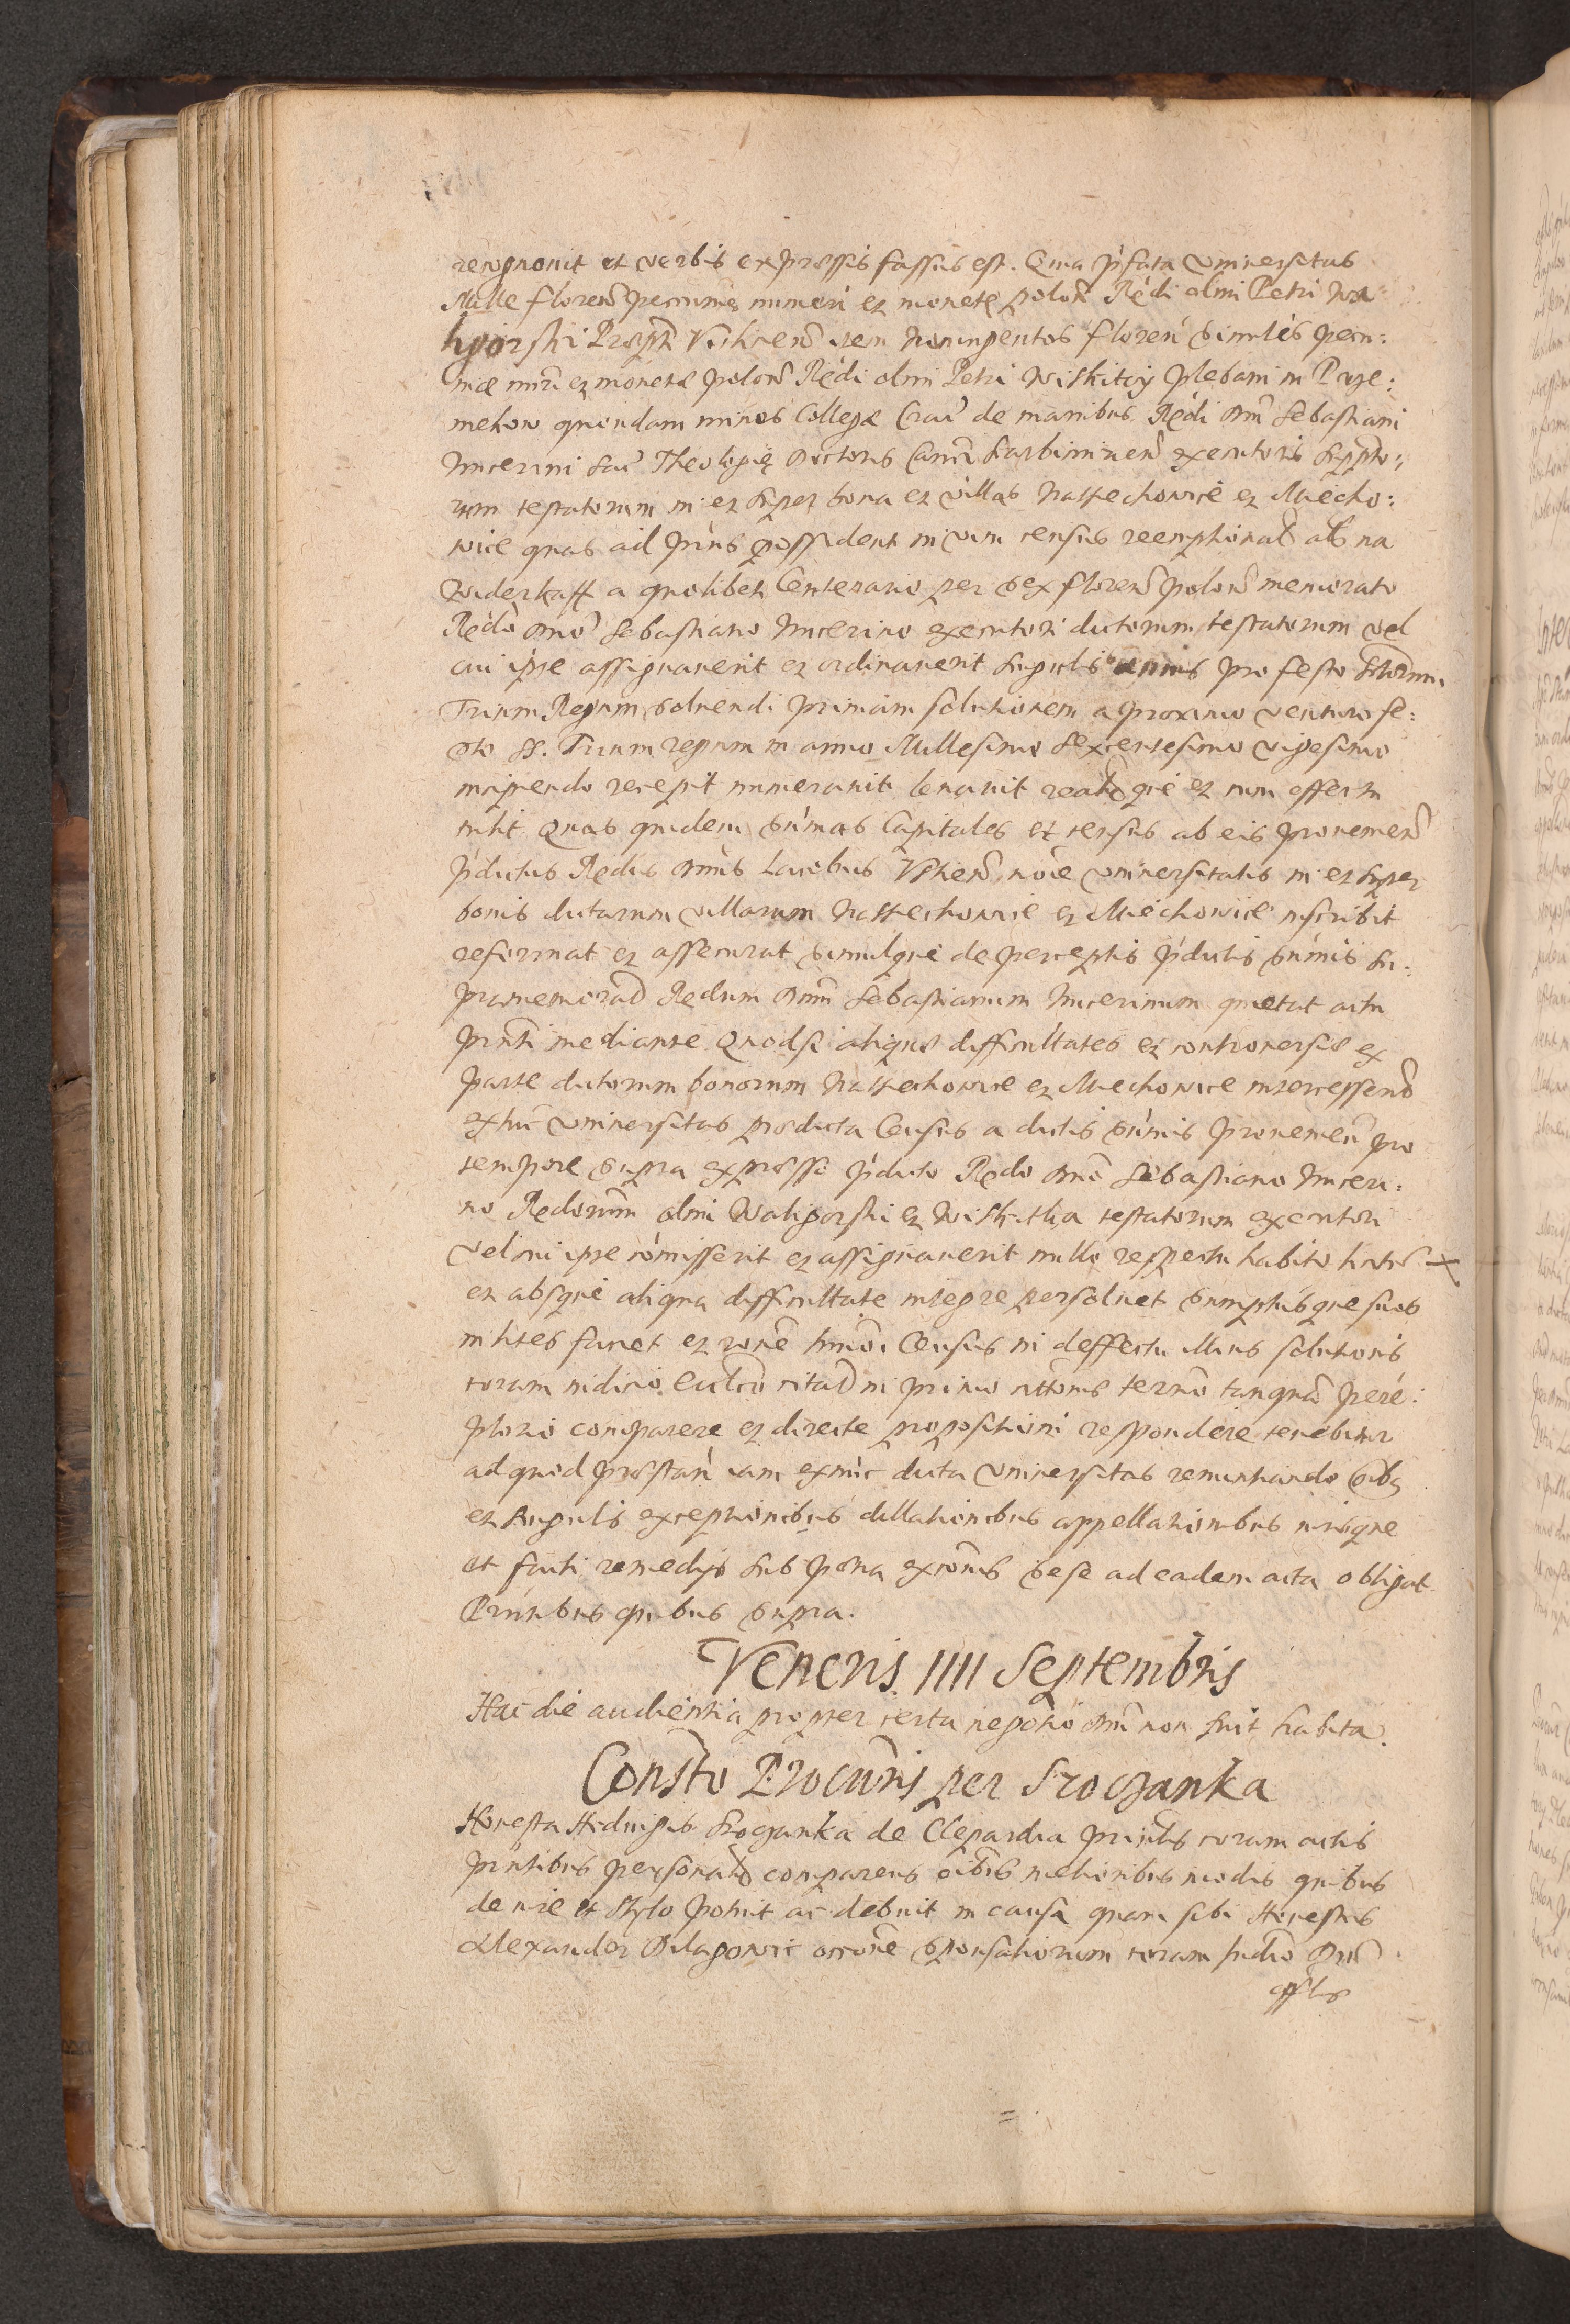 recognovit et verbis expressis fassus est. Quia p̃fata universitas
Mille floren̄ pecuniæ numeri et monetę polon̄ Rẽdi olim Petri Wa
ligorski Præpti item Noningentos floren̄ similes pecu:
niæ nu̅ri et monetæ polon̄ Rẽdi olim Petri Wiskitcij plebani in Prze:
mekow quondam minos Collegæ Crac̄ de manibus Rẽdi Dn̄i Sebastiani
Nucerini Sac̄ Theologię Doctoris Can̄ci Scarbimirien̄ executoris supto:
rum testatorum in et super bona et villas Naszechowice et Miecho:
wice quas ad pn̄s possident in vim census reemptional̄ al̄s na
widerkaff a quolibet Centenario per sex floren̄ polon̄ memorato
Rẽdo Dn̄o Sebastiano Nucerino executori dictorum testatorum vel
cui ipse assignaverit et ordinaverit singulis annis pro festo
Trium Regum solvendi primam solutionem a proximo venturo fe:
sto SS. Trium regum in anno Millesimo Sexcentesimo vigesimo
incipiendo recepit numeravit levavit realr̄ que et cum effectu
tulit Quas quidem sum̄as Capitales et census ab eis provenien̄
p̃dictus Rẽdus Dn̄us Jacobus no̅i̅e universitatis in et super
bonis dictarum villarum Naszechowice et Miechowice inscribit
reformat et assecurat simulque de perceptis p̃dictis sum̄is su:
pramemorat̄ Rẽdum Dn̄m Sebastianum Nucerinum quietat actu
pn̄ti mediante Quodsi aliquæ difficultates et controversiæ ex
parte dictorum bonorum Naszechowice et Miechowice intercesserin̄t
extunc universitas prædicta Census a dictis sum̄is provenien̄ pro
tempore supra expresso p̃dicto Rẽdo Dn̄o Sebastiano Nuceri:
no Rẽdorum olim Waligorski et Wiskitka testatorum executori
vel cui ipse com̄isserit et assignaverit nullo respectu habito +
et absque aliqua difficultate integre persolvet sumptusque suos
in lites faciet et ro̅n̅e hm̄oi Census in deffectu illius solutionis
coram iudicio citat̄ in primo citt̄onis termīo tanquā perē:
ptorio comparere et directe propositioni respondere tenebitur
ad quod præstan̄ iam exnunc dicta universitas renuntiando oībs
et singulis exceptionibus dillationibus appellationibus iurisque
et facti remedijs sub pœna exco̅n̅is sese ad eadem acta obligat
Pn̄tibus quibus supra.
Veneris IIII Septembris
Hac die audientia propter certa negotia Dn̄i non fuit habita.
Constō Procūris per Sroczanka
Honesta Hedvigis Sroczanka de Clepardia pn̄tialr̄ coram actis
pn̄tibus personalr̄ comparens oībus melioribus modis quibus
de iure et stylo potuit ac debuit in causa quam sibi Honestus
Alexander occo̅n̅e sponsaliorum coram Iudicio Dn̄i
offlis